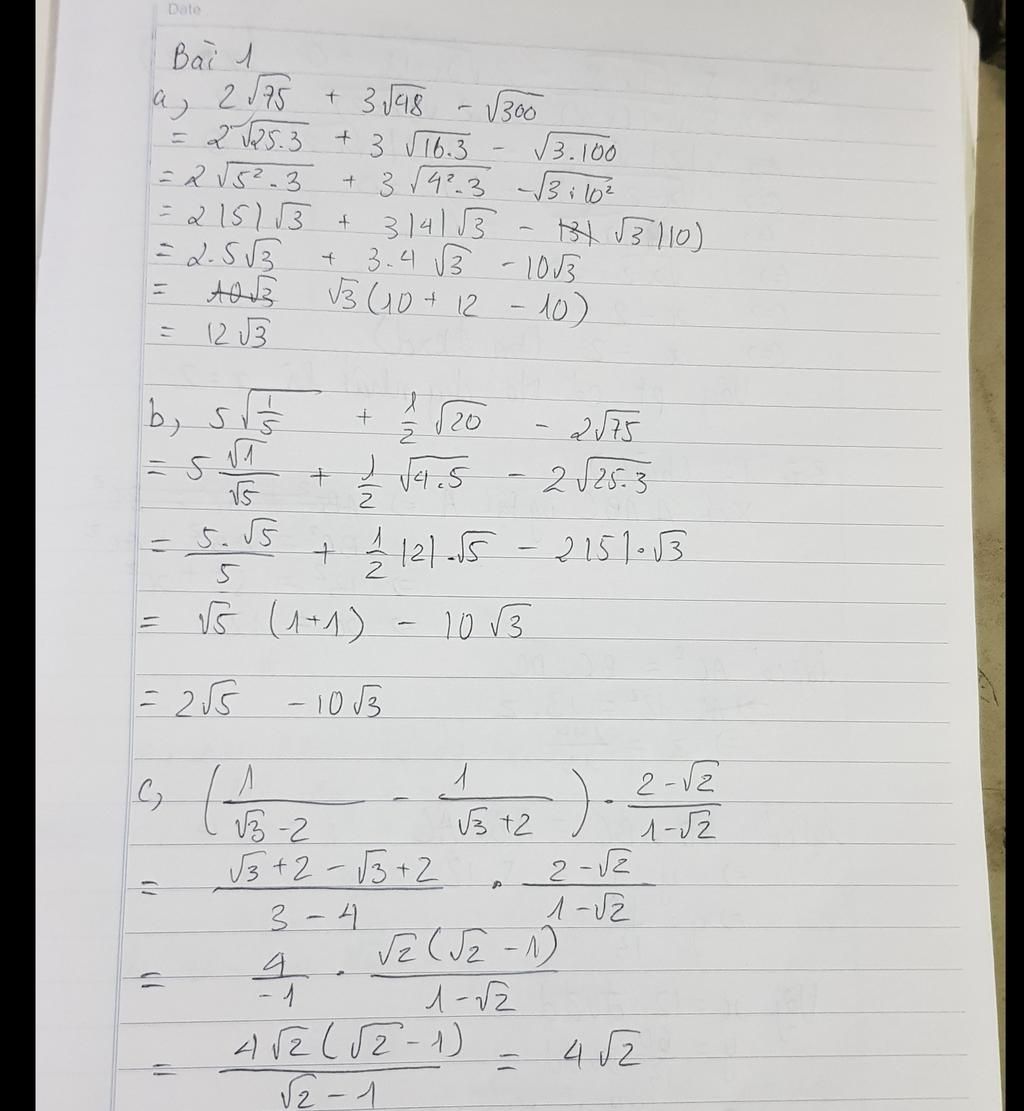 Date
Bài 1
a, 2√75 + 3√48 - √300
= 2√25.3 + 3 √16.3 - √3.100
= 2√5².3 + 3√4².3 - √3.10²
= 2|5|√3 + 3|4|√3 - |3| √3|10|
= 2.5√3 + 3.4√3 - 10√3
= 10√3 √3(10 + 12 - 10)
= 12√3
b, 5√(1/5) + 1/2 √20 - 2√75
= 5 √1/√5 + 1/2 √4.5 - 2√25.3
= 5.√5/5 + 1/2 |2|.√5 - 2|5|.√3
= √5 (1+1) - 10√3
= 2√5 - 10√3
c, (1/(√3-2) - 1/(√3+2)) . (2-√2)/(1-√2)
= (√3+2-√3+2)/(3-4) . (2-√2)/(1-√2)
= 4/-1 . √2(√2-1)/(1-√2)
= 4√2(√2-1)/(√2-1) = 4√2